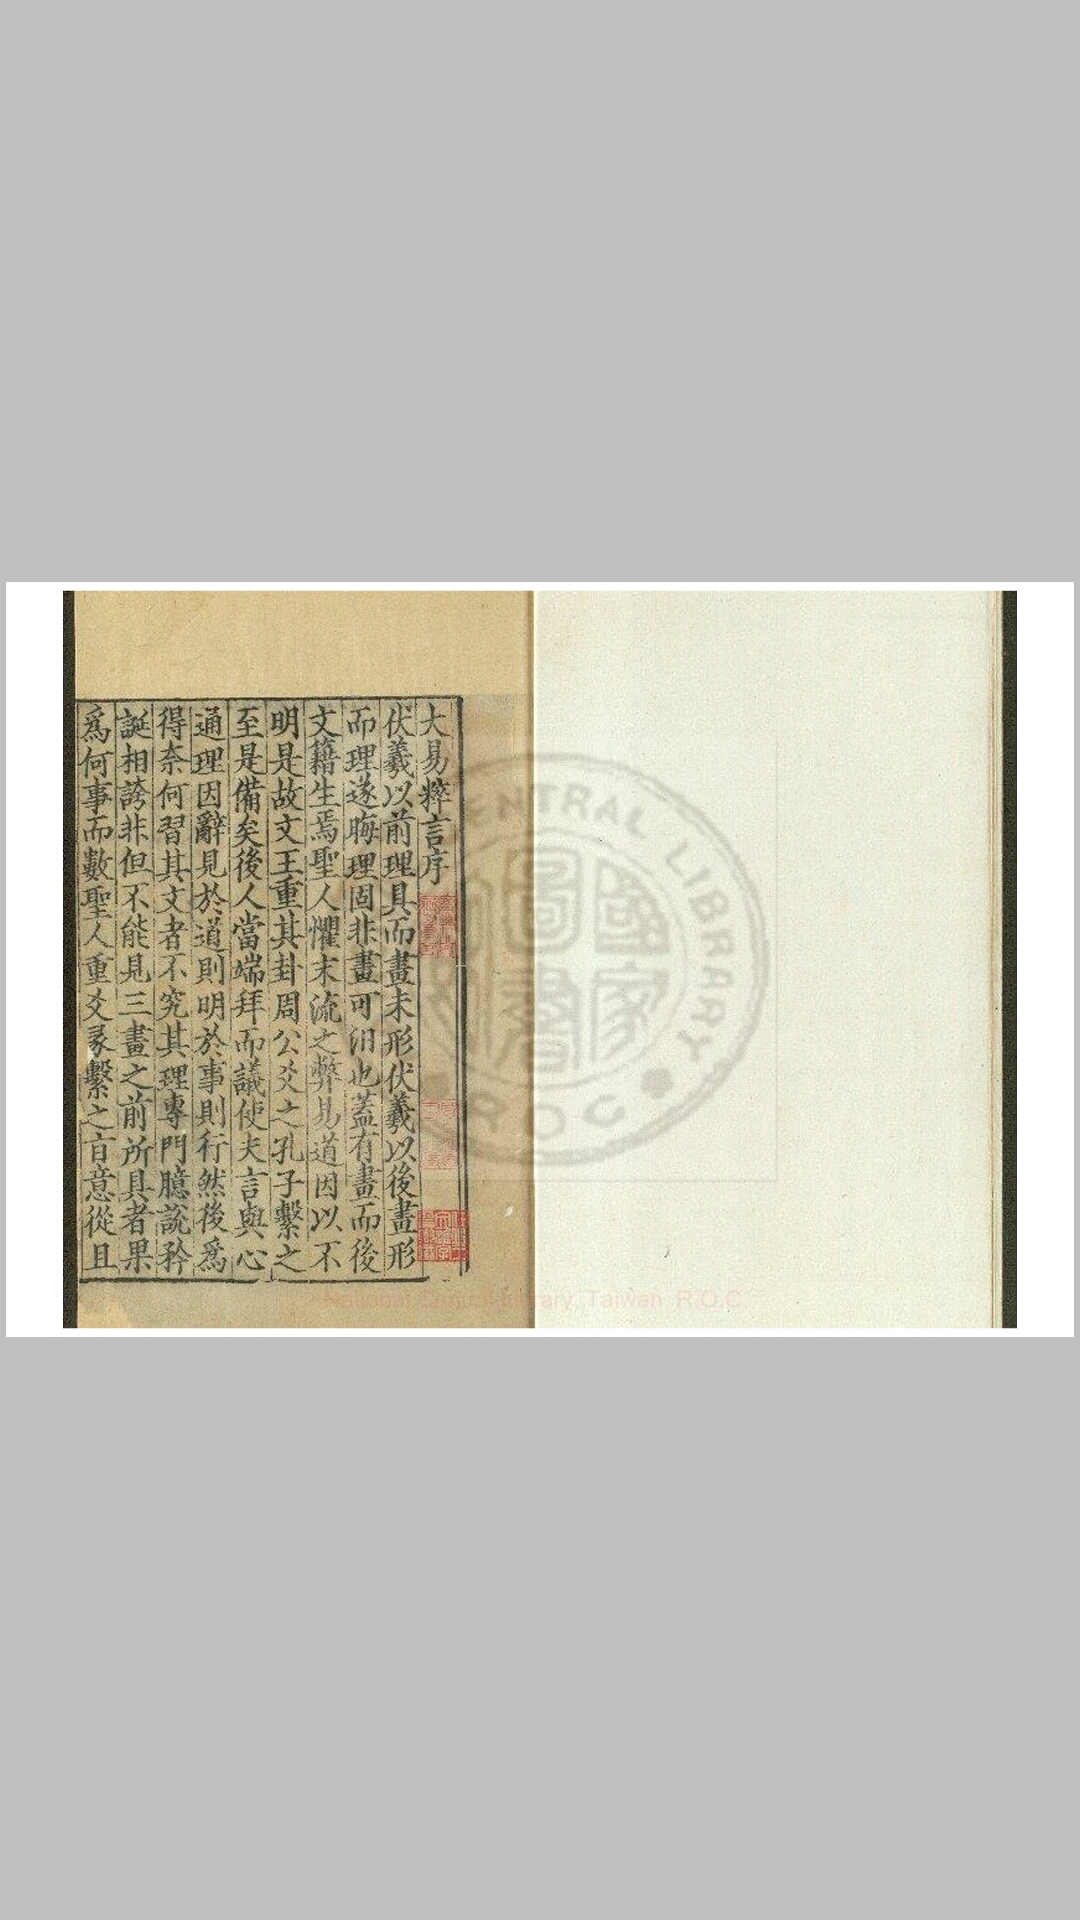 大易粹言序
伏羲以前理具而畫未形伏羲以後畫形
而理遂晦理固非畫可汩也蓋有畫而後
文籍生焉聖人懼末流之弊易道因以不
明是故文王重其卦周公爻之孔子繫之
至是備矣後人當端拜而議使夫言與心
通理因辭見於道則明於事則行然後爲
得奈何習其文者不究其理專門臆說矜
誕相誇非但不能見三畫之前所具者果
爲何事而數聖人重爻彖繫之㫖意從且
CENTRAL LIBRARY
國家圖書
R O C
National Central Library, Taiwan R.O.C